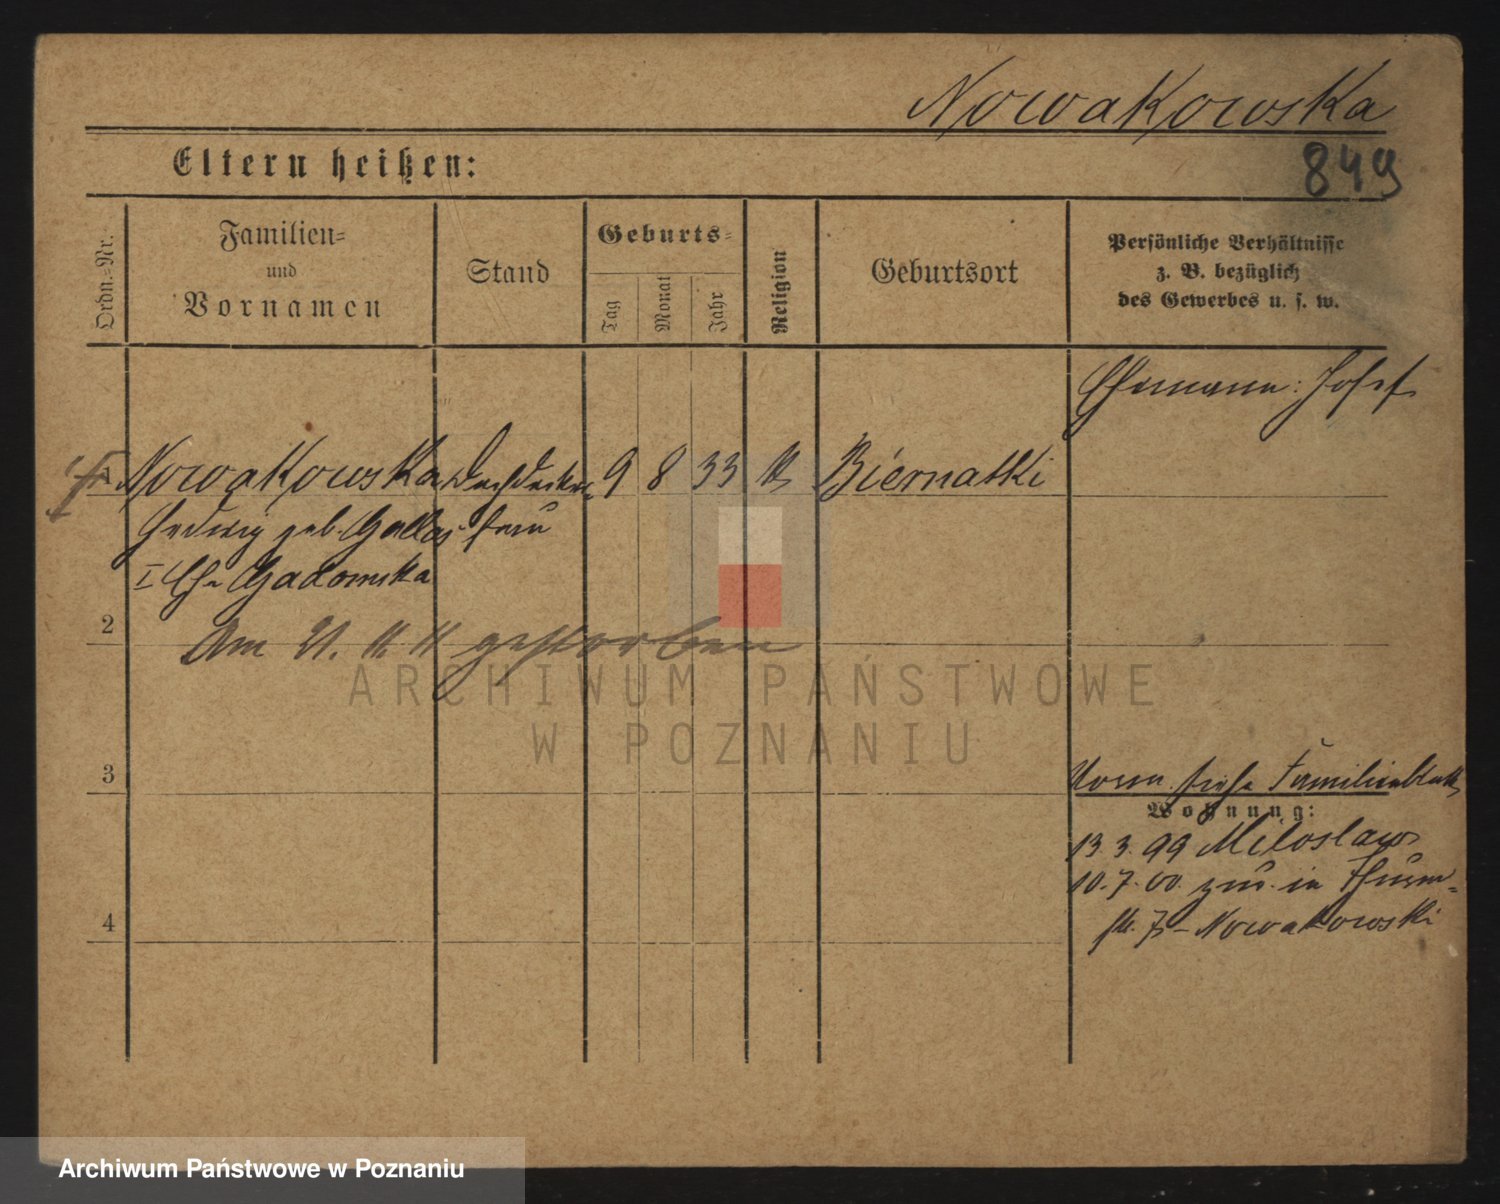 Nowakowska
849
Eltern heißen:
Ordn.-Nr.
Familien-
und
Vornamen
Stand
Geburts-
Tag
Monat
Jahr
Religion
Geburtsort
Persönliche Verhältnisse
z. B. bezüglich
des Gewerbes u. s. w.
Ehemann: Josef
1 Nowakowska Dachdecker- 9 8 33 K Biernatki
Hedwig geb. Gallas frau
I Ehe Gadomska
2
Am 21. 11. 11 gestorben
ARCHIWUM PAŃSTWOWE
W POZNANIU
3
siehe Familienblatt
Wohnung:
13. 3. 99 Miloslaw
10. 7. 00. zur. in Thurm-
4
Nowakowski
Archiwum Państwowe w Poznaniu